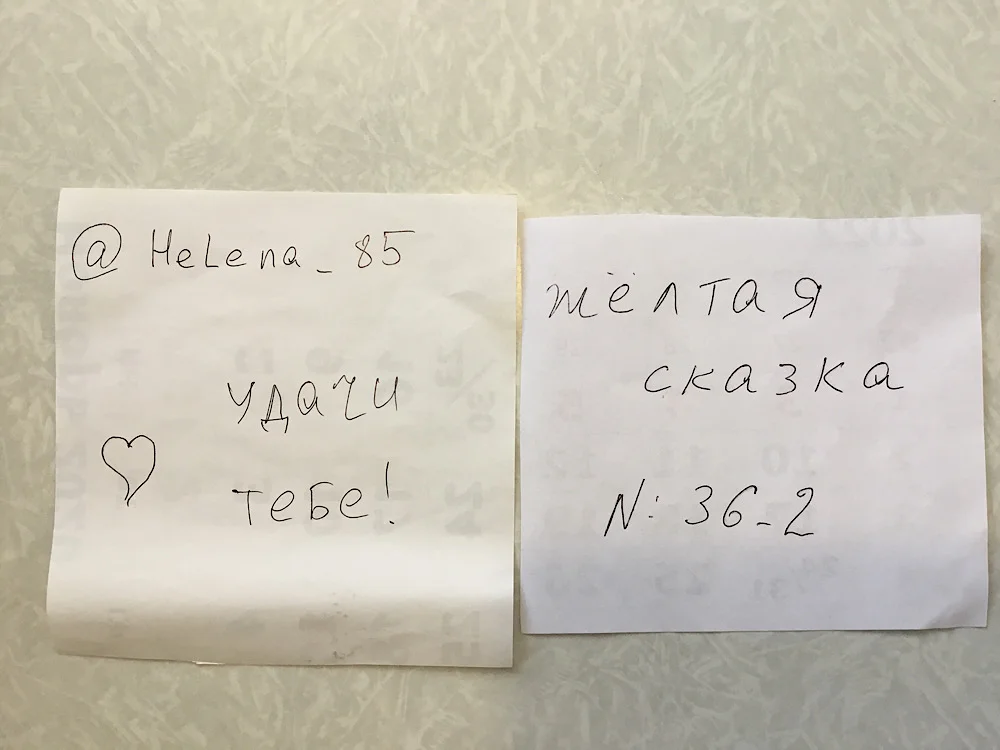 @ Helena_85
удачи
тебе!
жёлтая
сказка
N: 36-2